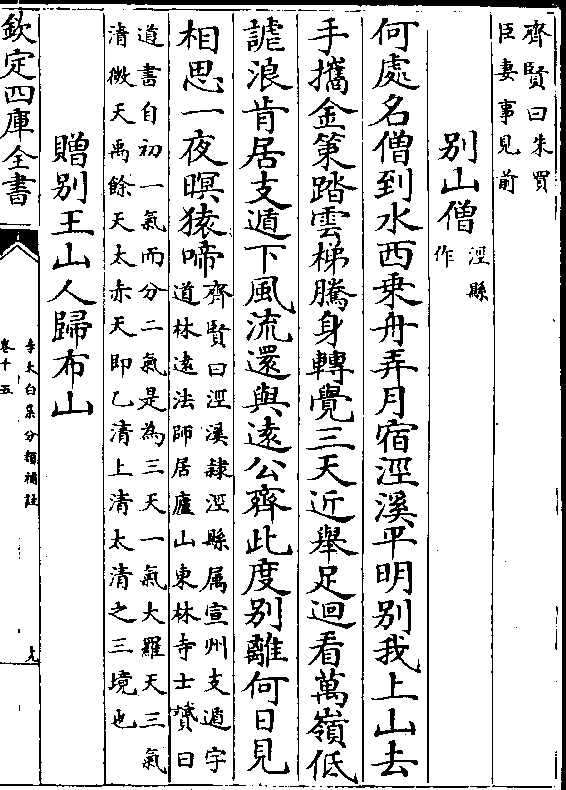 齊賢曰朱買
臣妻事見前
別山僧
涇縣
作
何處名僧到水西乗舟弄月宿涇溪平明別我上山去
手攜金策踏雲梯騰身轉覺三天近舉足迴看萬嶺低
謔浪肯居支遁下風流還與遠公齊此度別離何日見
相思一夜暝猿啼
齊賢曰涇溪隷涇縣属宣州支遁字
道林遠法師居廬山東林寺士贇曰
道書自初一氣而分二氣是為三天一氣大羅天三氣
清微天禹餘天太赤天即乙清上清太清之三境也
贈別王山人歸布山
欽定四庫全書
李太白集分類補註
卷十五
九